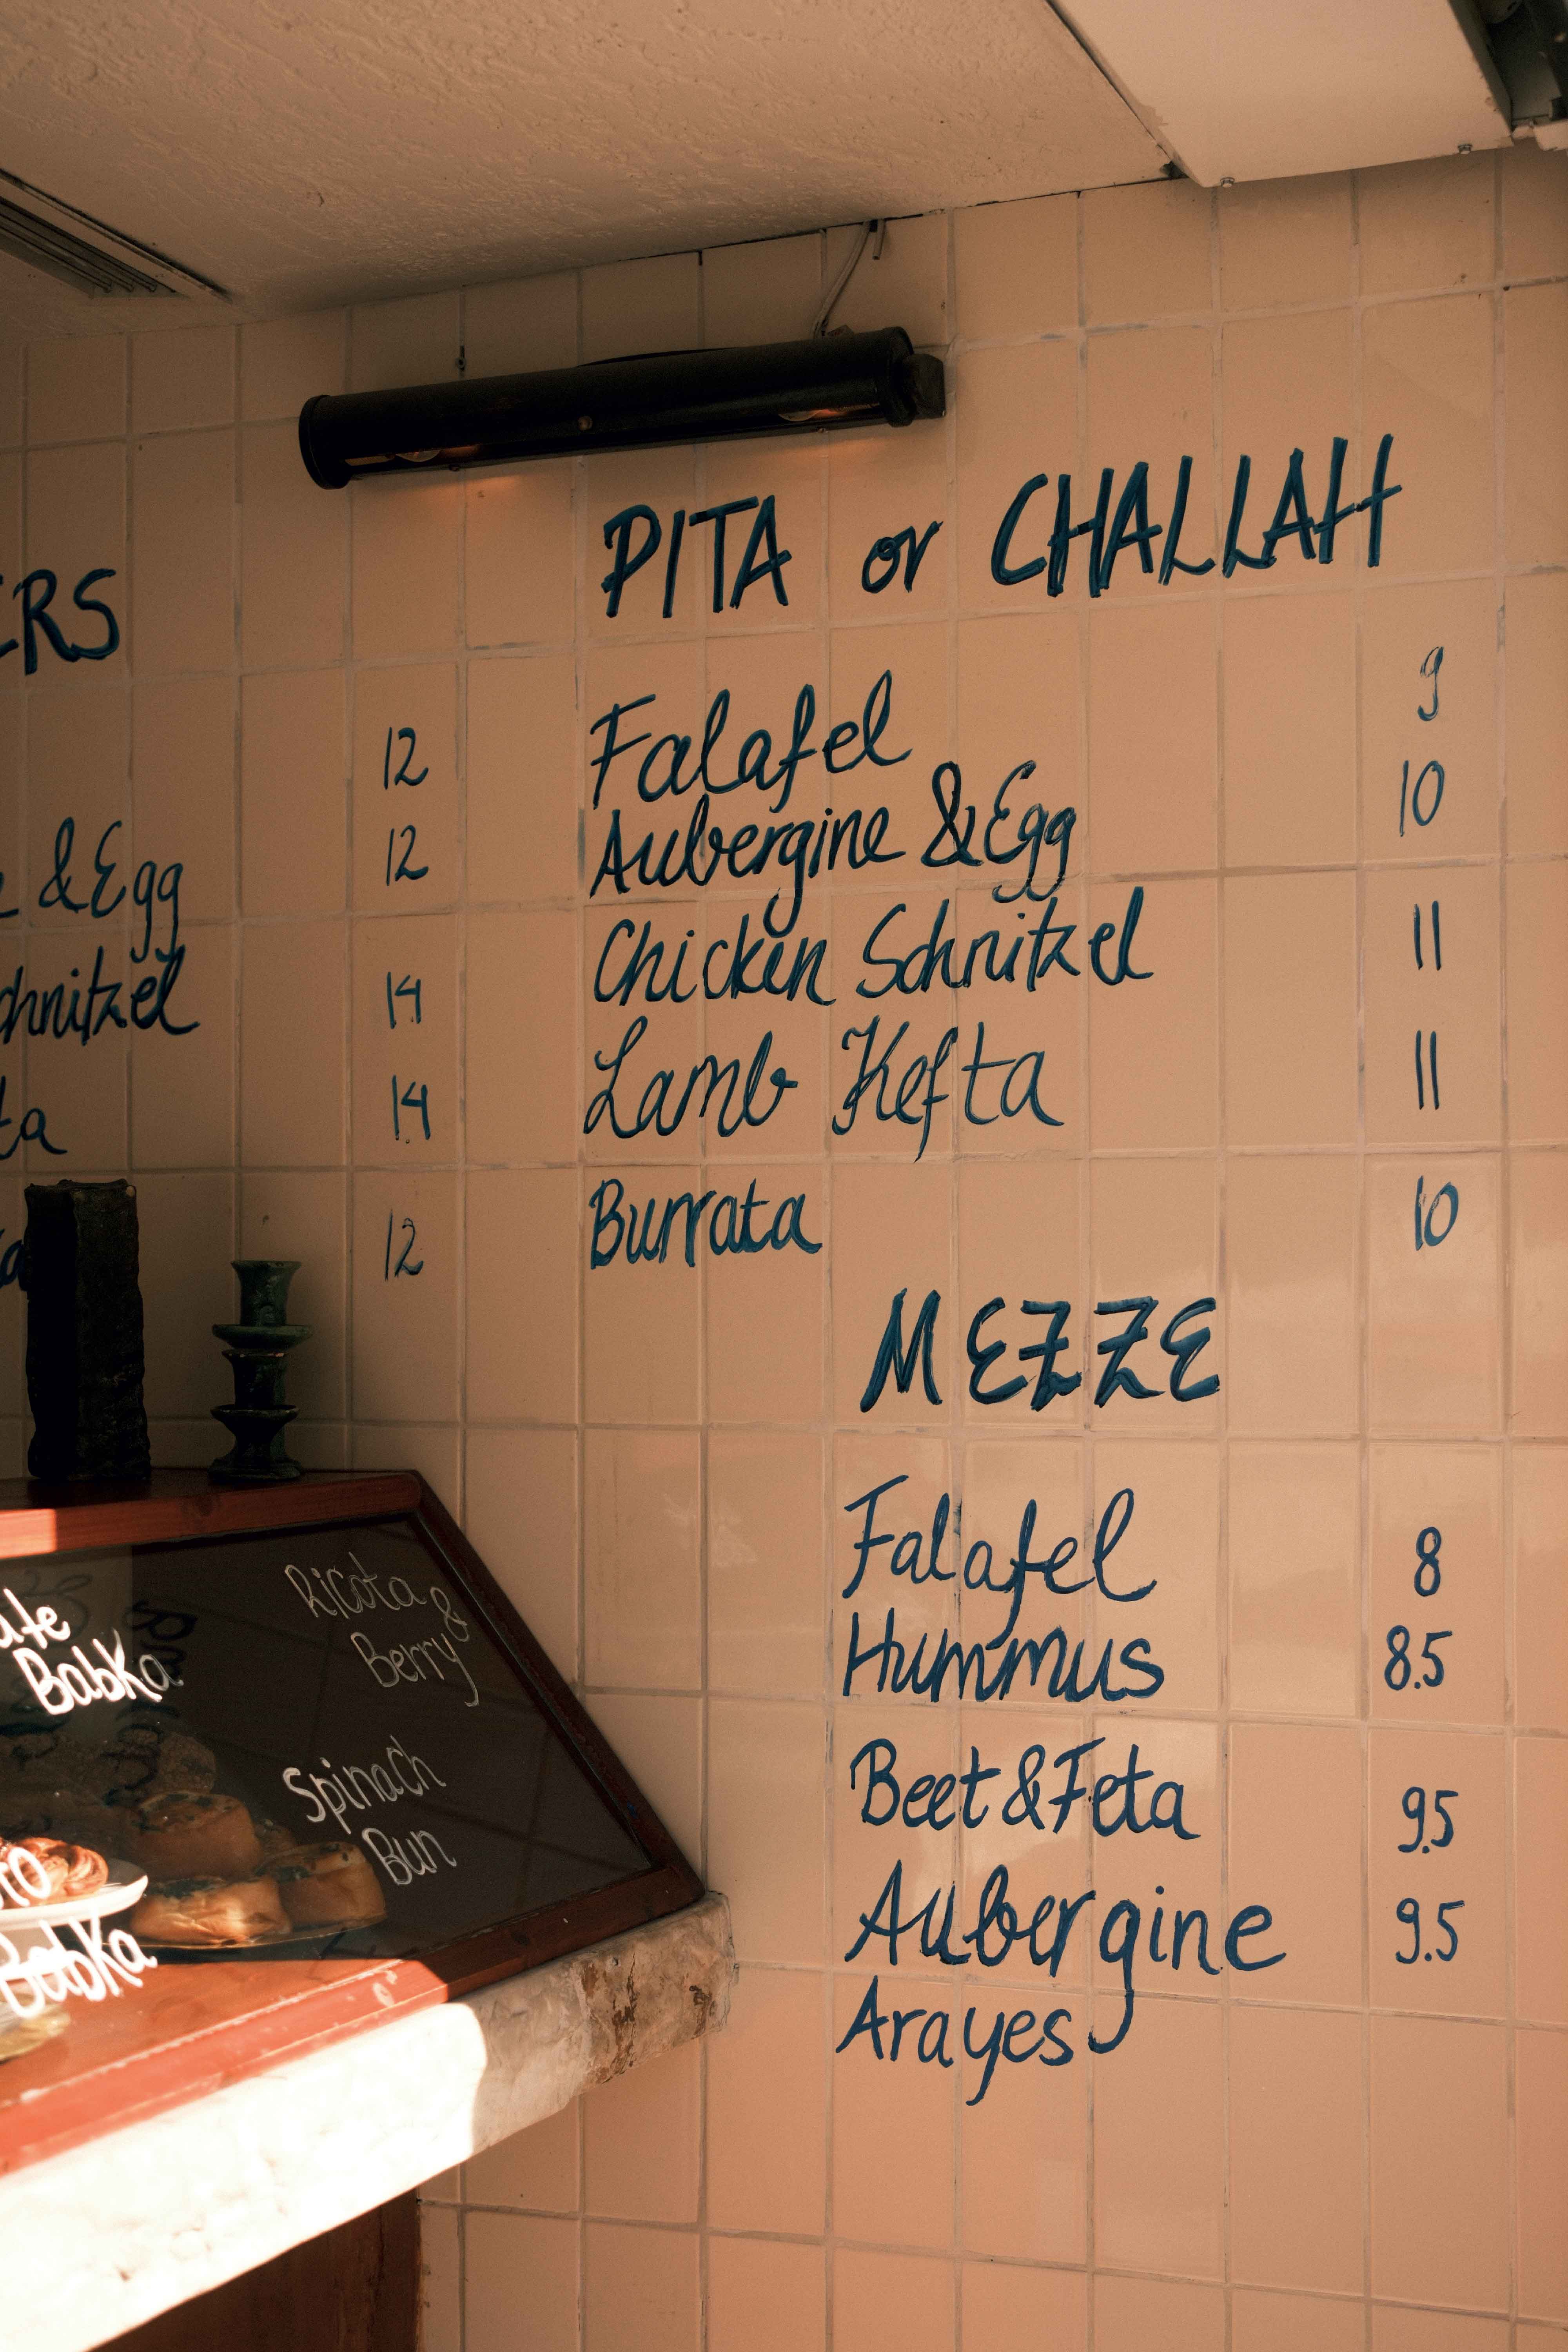 ERS
12
& Egg 12
chnitzel 14
ta 14
12
PITA or CHALLAH
Falafel 9
Aubergine & Egg 10
Chicken Schnitzel 11
Lamb Kefta 11
Burrata 10
MEZZE
Falafel 8
Hummus 8.5
Beet & Feta 9.5
Aubergine 9.5
Arayes
Babka
Ricota &
Berry
Spinach
Bun
Babka